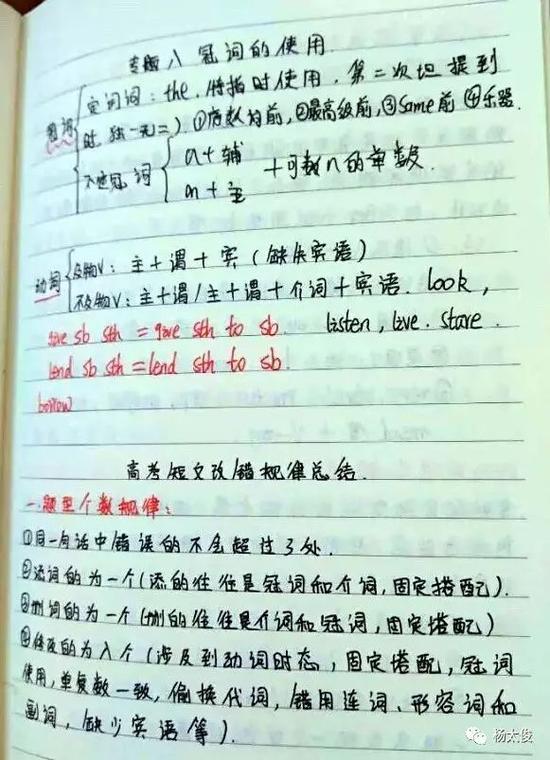 专题八 冠词的使用
冠词 定冠词：the，特指时使用，第二次也提到
时，独一无二）①序数词前，②最高级前，③Same前 ④乐器.
不定冠词 a+辅
an+主
+可数n的单数.
动词 及物V：主+谓+宾（缺失宾语）
不及物V：主+谓/主+谓+介词+宾语. look,
give sb sth = give sth to sb. listen, live. stare.
lend sb sth = lend sth to sb.
borrow
高考短文改错规律总结.
一.题型个数规律：
①同一句话中错误的不会超过3处.
②添词的为一个(添的往往是冠词和介词,固定搭配).
③删词的为一个(删的往往是介词和冠词,固定搭配)
④修改的为八个(涉及到动词时态,固定搭配,冠词
使用,单复数一致,偷换代词,错用连词、形容词和
副词,缺少宾语等).
杨太俊